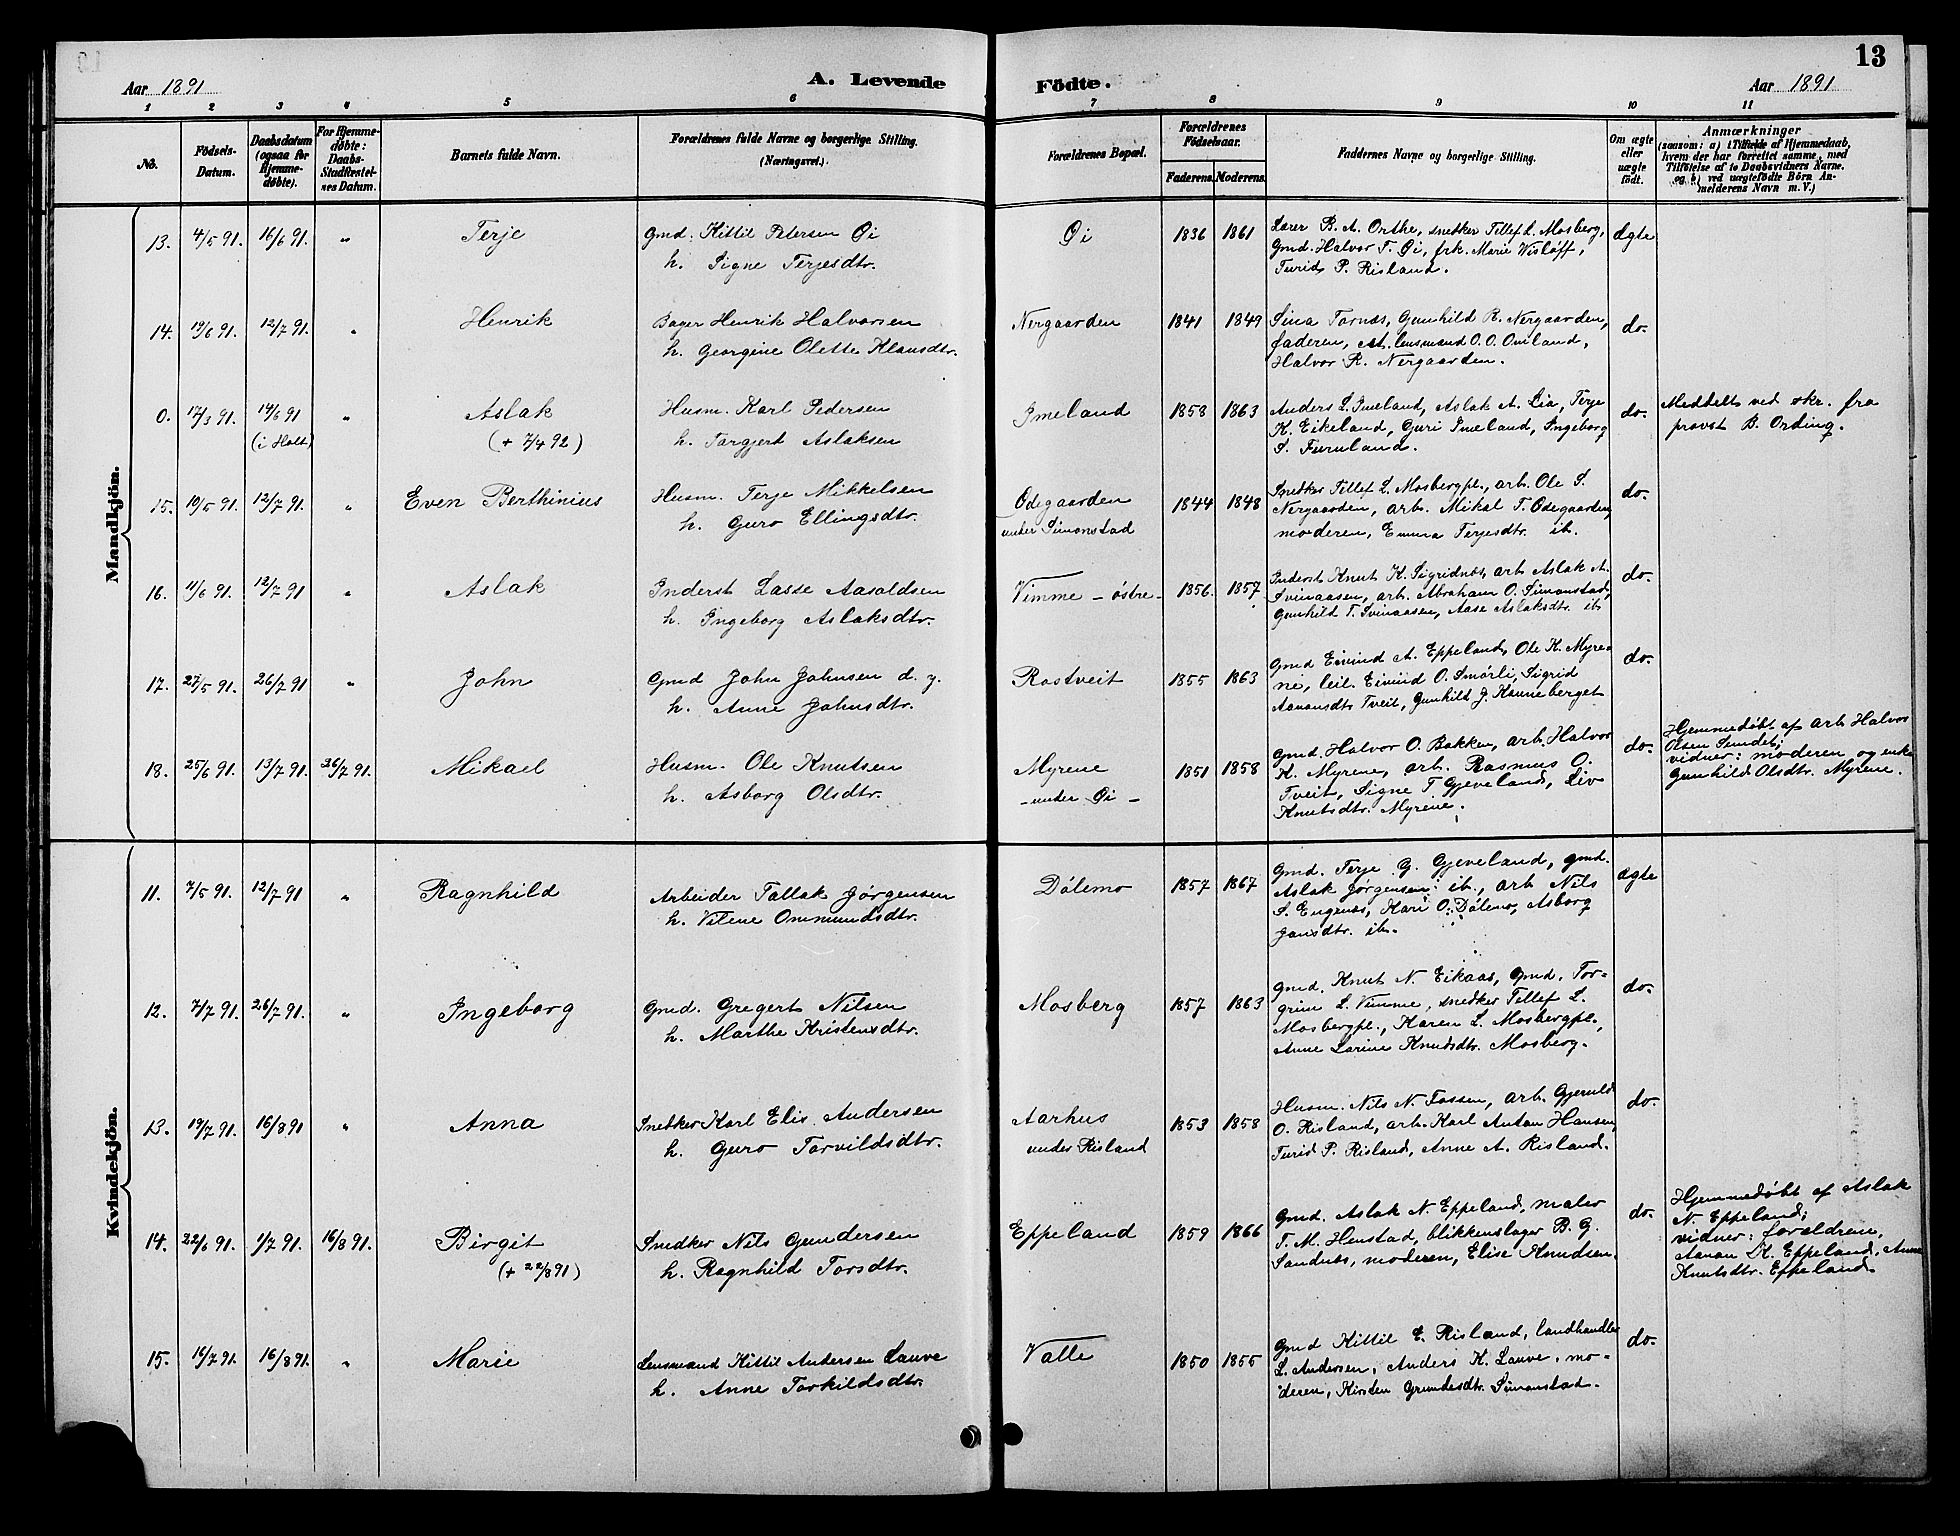 13
Aar 1891
A. Levende Födte.
Aar 1891
1 2 3 4 5 6 7 8 9 10 11
No.
Födsels-
Datum.
Daabsdatum
(ogsaa for
Hjemme-
døbte).
For Hjemme-
døbte:
Daabs-
Stadfæstel-
nes Datum.
Barnets fulde Navn.
Forældrenes fulde Navne og borgerlige Stilling.
(Næringsvei.)
Forældrenes Bopæl.
Forældrenes
Födselsaar.
Faderens. Moderens.
Faddernes Navne og borgerlige Stilling.
Om ægte
eller
uægte
født.
Anmærkninger
(saasom: a) i Tilfælde af Hjemmedaab,
hvem der har forrettet samme, med
Tilføielse af to Daabsvidners Navne.
og b) ved uægtefødte Börn An-
melderens Navn m. V.)
Mandkjön.
13. 4/5 91. 16/6 91. „ Terje
Gmd. Kittil Petersen Øi
h. Signe Terjesdtr.
Øi 1836 1861
Lærer R. A. Orthe, snedker Tillef L. Mosberg,
Gmd. Halvor T. Øi, frk. Marie Wisløff,
Turid P. Risland.
ægte
14. 19/6 91. 12/7 91. „ Henrik
Bager Henrik Halvorsen
h. Georgine Olette Klausdtr.
Nergaarden 1841 1849
Sina Tornæs, Gunhild R. Nergaarden,
faderen, lensmand O. O. Omland,
Halvor R. Nergaarden.
do.
0. 17/3 91. 14/6 91
(i Holt)
„ Aslak
(+ 7/4 92)
Husm. Karl Pedersen
h. Torgjert Aslaksen
Imeland 1858 1863
Anders L. Imeland, Aslak A. Lia, Terje
K. Eikeland, Guri Imeland, Ingeborg
S. Furuland.
do.
Meddelt ved skr. fra
provst B. Ording.
15. 10/5 91. 12/7 91. „ Even Berthinius
Husm. Terje Mikkelsen
h. Guro Ellingsdtr.
Ødegaarden
under Simonstad
1844 1848
Snedker Tillef L. Mosbergpl., arb. Ole S.
Nergaarden, arb. Mikal T. Ødegaarden,
moderen, Emma Terjesdtr. ib.
do.
16. 11/6 91. 12/7 91 „ Aslak
Inderst Lasse Aasoldsen
h. Ingeborg Aslaksdtr.
Vimme - østre - 1856. 1857
Inderst Knut K. Sigridnæs, arb. Aslak A.
Svinaasen, arb. Abraham O. Simonstad,
Gunhild T. Svinaasen, Aase Aslaksdtr. ib
do.
17. 27/5 91. 26/7 91 „ John
Gmd John Johnsen d. y.
h. Anne Johnsdtr.
Rostveit 1855 1863
Gmd Eivind A. Eppeland, Ole K. Myre-
ne, leil. Eivind O. Smørli, Sigrid
Aanonsdtr. Tveit, Gunhild J. Henneberget
do.
18. 25/6 91. 13/7 91. 26/7 91. Mikael
Husm. Ole Knutsen
h. Asborg Olsdtr.
Myrene
- under Øi -
1851 1858
Gmd. Halvor O. Bakken, arb. Halvor
K. Myrene, arb. Rasmus O.
Tveit, Signe T Gjeveland, Liv
Knutsdtr. Myrene.
do.
Hjemmedøbt af arb. Halvor
Olsen Sundet;
vidner: moderen og enke
Gunhild Olsdtr. Myrene.
Kvindekjön.
11. 7/5 91. 12/7 91 „ Ragnhild
Arbeider Tallak Jørgensen
h. Vilene Ommundsdtr.
Dølemo 1857 1867
Gmd. Terje G. Gjeveland, gmd.
Aslak Jørgensen ib., arb. Nils
S. Engenæs, Kari O. Dølemo, Asborg
Jansdtr. ib.
ægte
12. 7/7 91. 26/7 91. „ Ingeborg
Gmd. Gregert Nilsen
h. Marthe Kristensdtr.
Mosberg 1857 1863
Gmd. Knut N. Eikaas, gmd. Tor-
grim L. Vimme, snedker Tillef L.
Mosbergpl., Karen L. Mosbergpl.,
Anne Larine Knudsdtr. Mosberg.
do.
13. 19/7 91. 16/8 91 „ Anna
Snedker Karl Elis Andersen
h. Guro Torvildsdtr.
Aarhus
under Risland
1853 1858
Husm. Nils N. Fossen, arb. Gjeruld
O. Risland, arb. Karl Anton Hansen,
Turid P. Risland, Anne A. Risland.
do.
14. 22/6 91. 1/7 91. 16/8 91. Birgit
(+ 22/8 91)
Snedker Nils Gundersen
h. Ragnhild Torsdtr.
Eppeland 1859 1866
Gmd. Aslak N. Eppeland, maler
T. M. Henstad, blikkenslager B. G.
Sandnes, moderen, Elise Knudsen.
do.
Hjemmedøbt af Aslak
N. Eppeland;
vidner: forældrene,
Aanon K. Eppeland, Anne
Knutsdtr. Eppeland.
15. 16/7 91. 16/8 91. „ Marie
Lensmand Kittil Andersen Lauve
h. Anne Torkildsdtr.
Valle 1850 1855
Gmd Kittil E. Risland, landhandler
L. Andersen, Anders K. Lauve, mo-
deren, Kirsten Simonstad.
do.